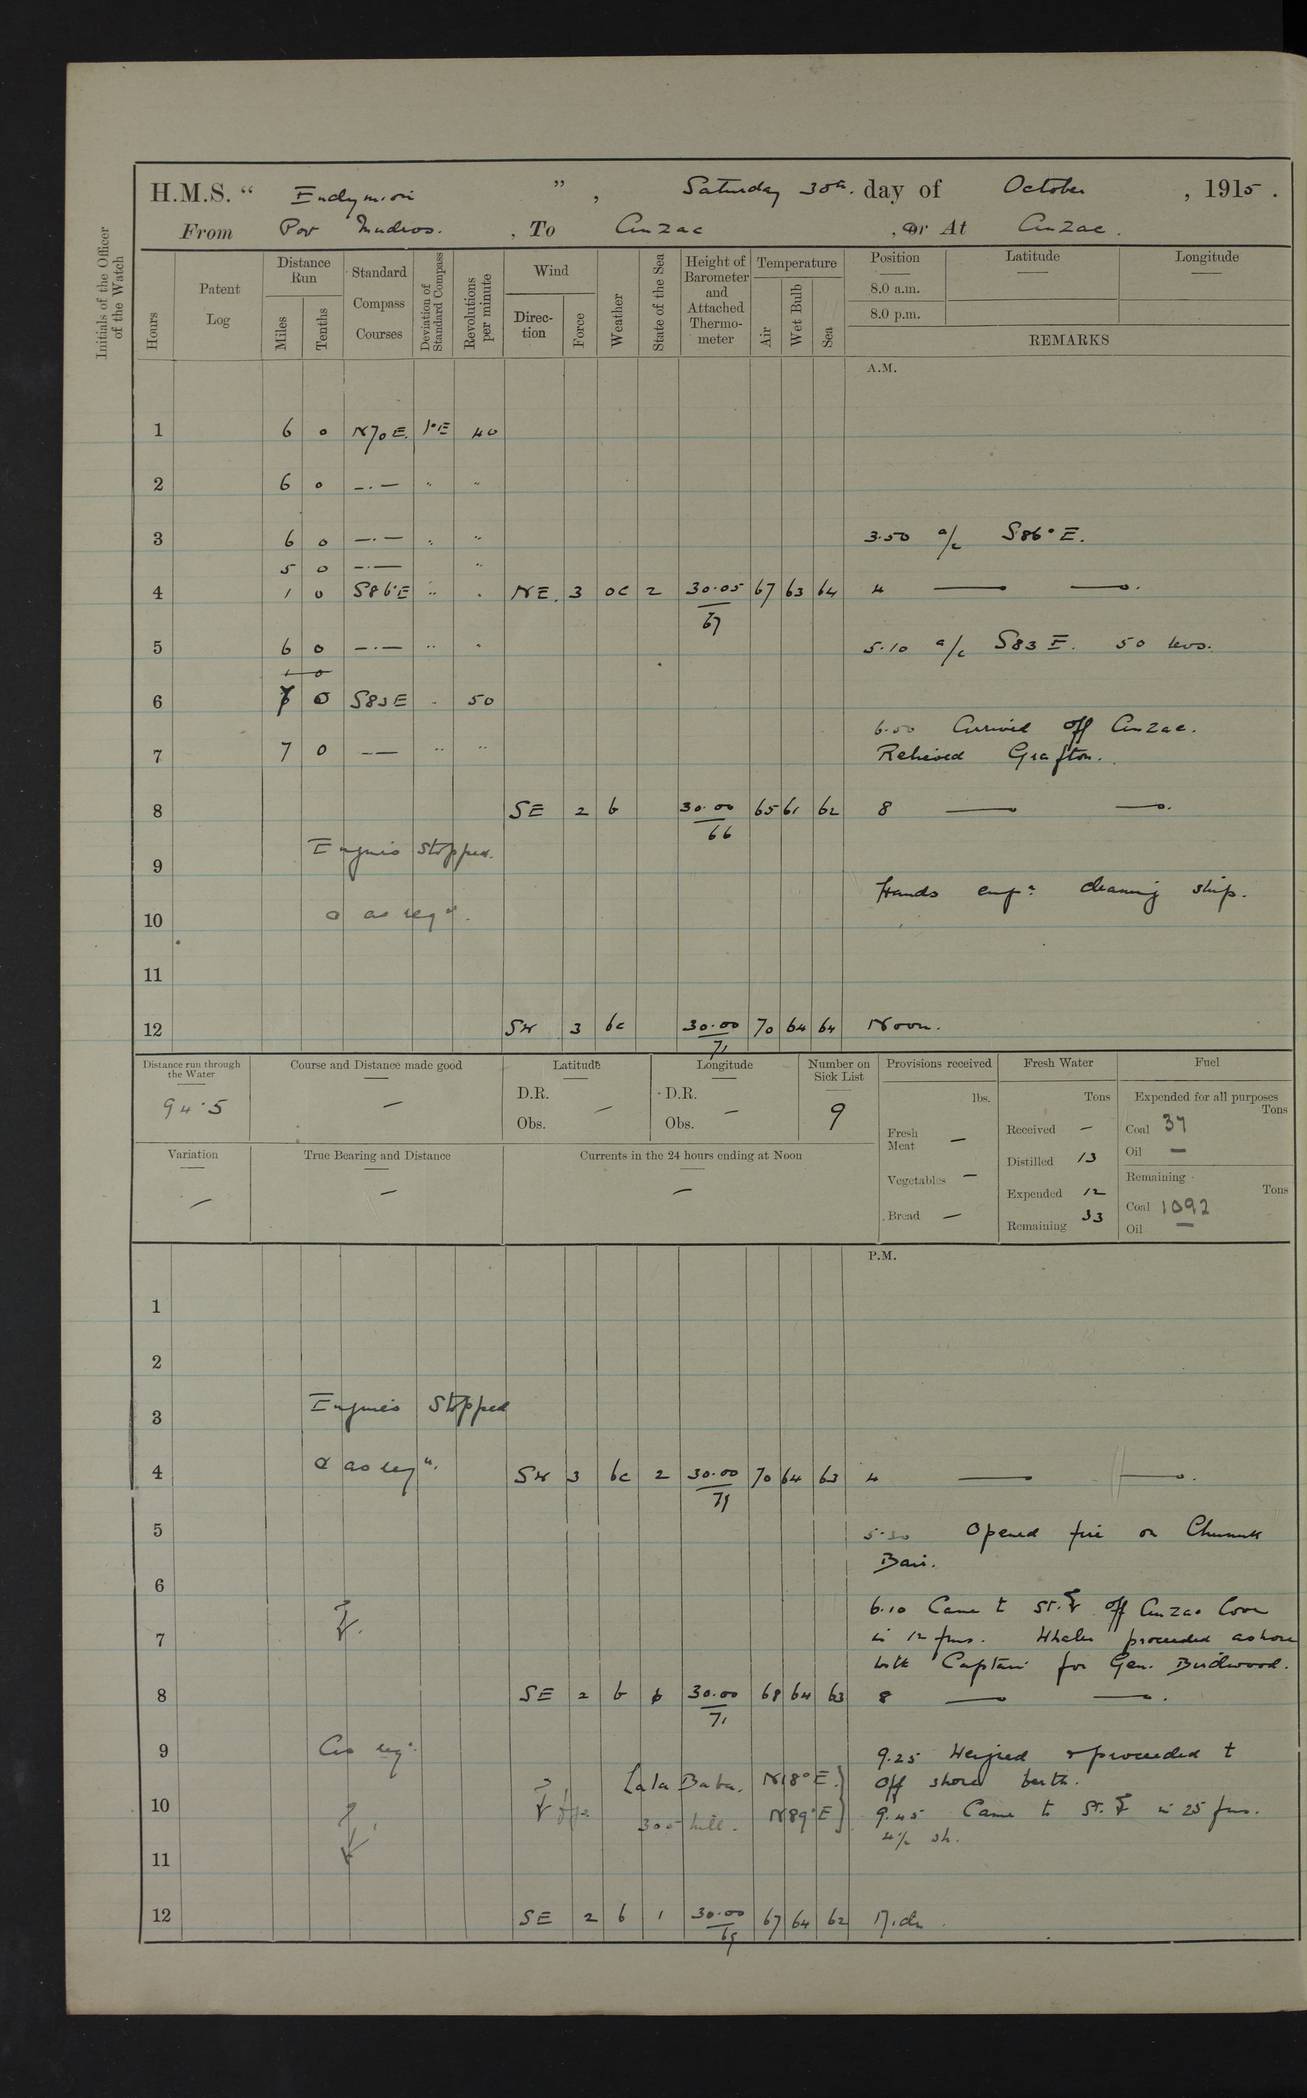 H.M.S. “ Endymion ” , Saturday 30th. day of October , 1915 .
From Port Mudros. , To Anzac , Or At Anzac .
Initials of the Officer of the Watch
Hours
Patent Log
Distance Run
Miles
Tenths
Standard Compass Courses
Deviation of Standard Compass
Revolutions per minute
Wind
Direction
Force
Weather
State of the Sea
Height of Barometer and Attached Thermometer
Temperature
Air
Wet Bulb
Sea
Position
8.0 a.m.
8.0 p.m.
Latitude
Longitude
REMARKS
A.M.
1 6 0 N70E. 1°E 40
2 6 0 —.— " "
3 6 0 —.— " " 3.50 a/c S86°E.
5 0 —.— "
4 1 0 S86°E " " NE. 3 oc 2 30.05 67 63 64 4 —— ——.
67
5 6 0 —.— " " 5.10 a/c S83E. 50 revs.
6 7 0 S83E " 50
6.50 Arrived off Anzac.
7 7 0 —— " " Relieved Grafton.
8 SE 2 b 30.00 65 61 62 8 —— ——.
66
9 Engines Stopped.
Hands empd. cleaning ship.
10 & as reqd.
11
12 SW 3 bc 30.00 70 64 64 Noon.
71
Distance run through the Water
94.5
Course and Distance made good
—
Latitude
D.R.
Obs. —
Longitude
D.R.
Obs. —
Number on Sick List
9
Provisions received
lbs.
Fresh Meat —
Vegetables —
Bread —
Fresh Water
Tons
Received —
Distilled 13
Expended 12
Remaining 33
Fuel
Expended for all purposes
Tons
Coal 37
Oil —
Remaining
Tons
Coal 1092
Oil —
Variation
—
True Bearing and Distance
—
Currents in the 24 hours ending at Noon
—
P.M.
1
2
3 Engines Stopped
4 & as reqd. SW 3 bc 2 30.00 70 64 63 4 —— ——.
71
5 5.30 Opened fire on Chunuk
Bair.
6
6.10 Came to St. off Anzac Cove
7 in 12 fms. Whaler proceeded ashore
with Captain for Gen. Birdwood.
8 SE 2 b 30.00 68 64 63 8 —— ——.
71
9 As reqd. 9.25 Weighed & proceeded to
Lala Baba. N18°E. off shore berth.
10 300 hill. N89°E 9.45 Came to St. in 25 fms.
4½ sh.
11
12 SE 2 b 1 30.00 67 64 62 Midn.
69